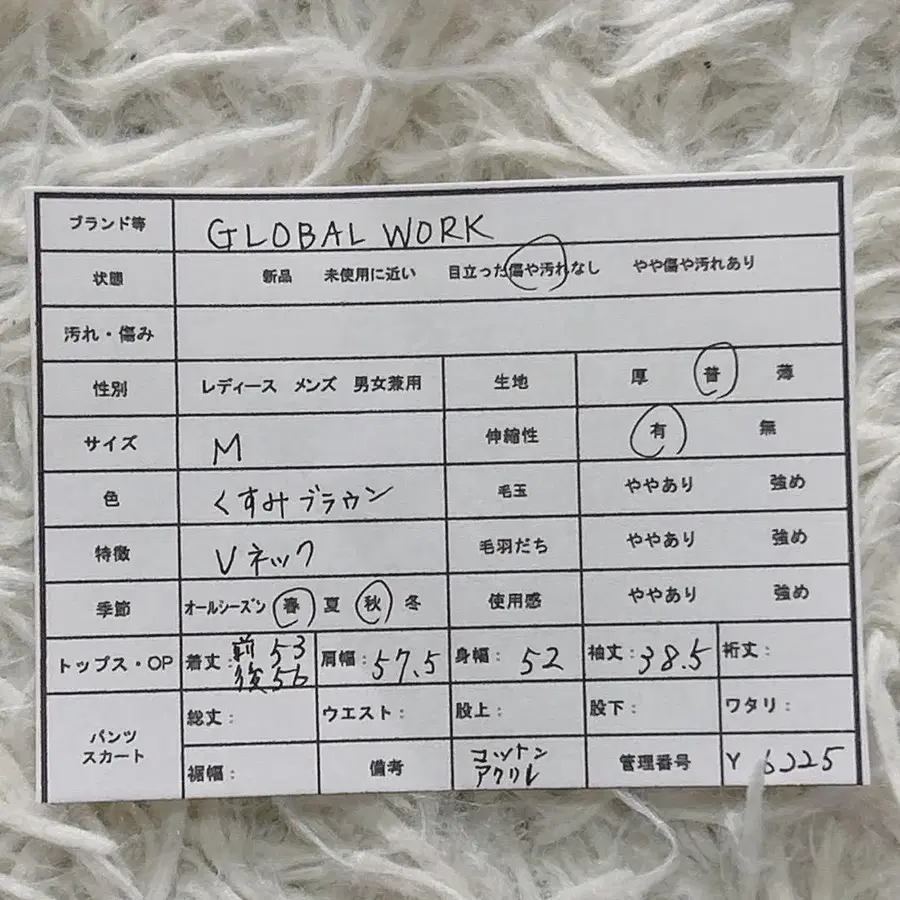 ブランド等 GLOBAL WORK
状態 新品 未使用に近い 目立った傷や汚れなし やや傷や汚れあり
汚れ・傷み
性別 レディース メンズ 男女兼用 生地 厚 普 薄
サイズ M 伸縮性 有 無
色 くすみブラウン 毛玉 ややあり 強め
特徴 Vネック 毛羽だち ややあり 強め
季節 オールシーズン 春 夏 秋 冬 使用感 ややあり 強め
トップス・OP 着丈:前53 後56 肩幅:57.5 身幅:52 袖丈:38.5 裄丈:
パンツ スカート 総丈: ウエスト: 股上: 股下: ワタリ:
裾幅: 備考 コットン アクリル 管理番号 Y